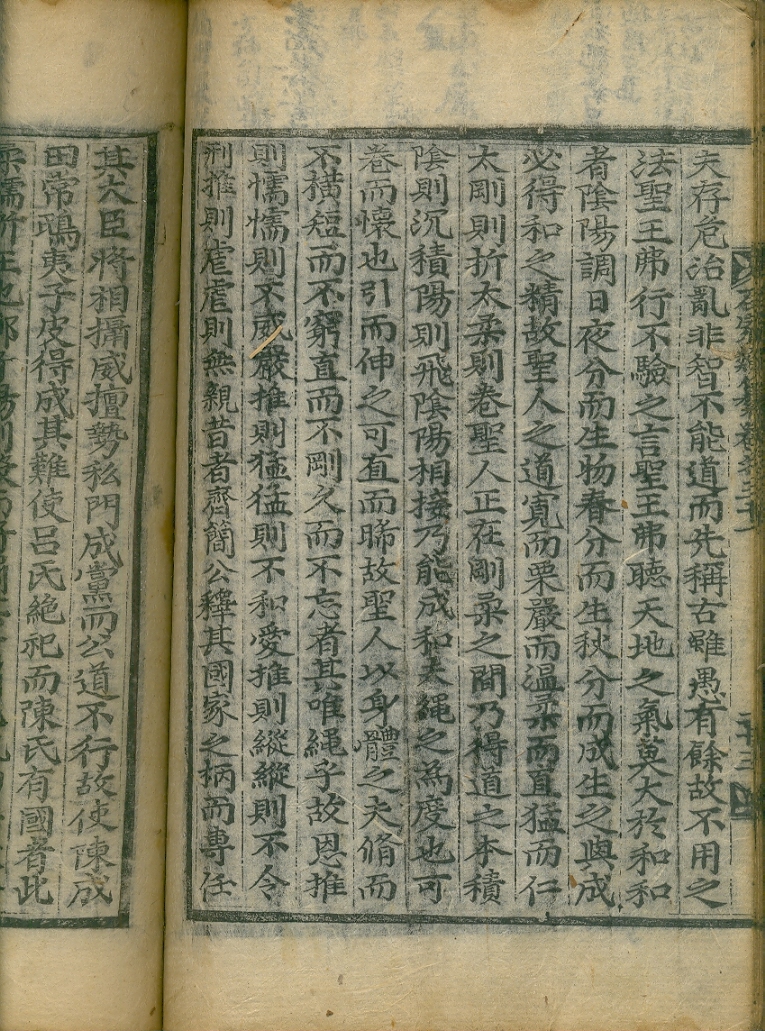 夫存危治亂非智不能道而先稱古雖愚有餘故不用之
法聖王弗行不驗之言聖王弗聽天地之氣莫大於和和
者陰陽調日夜分而生物春分而生秋分而成生之與成
必得和之精故聖人之道寬而栗嚴而溫柔而直猛而仁
太剛則折太柔則卷聖人正在剛柔之間乃得道之本積
陰則沉積陽則飛陰陽相接乃能成和夫繩之爲度也可
卷而懷也引而伸之可直而睎故聖人以身體之夫脩而
不橫短而不窮直而不剛久而不忘者其唯繩乎故恩推
則懦懦則不威嚴推則猛猛則不和愛推則縱縱則不令
刑推則虐虐則無親昔者齊簡公釋其國家之柄而專任
其大臣將相攝威擅勢私門成黨而公道不行故使陳成
田常鴟夷子皮得成其難使呂氏絶祀而陳氏有國者此
柔懦所生也